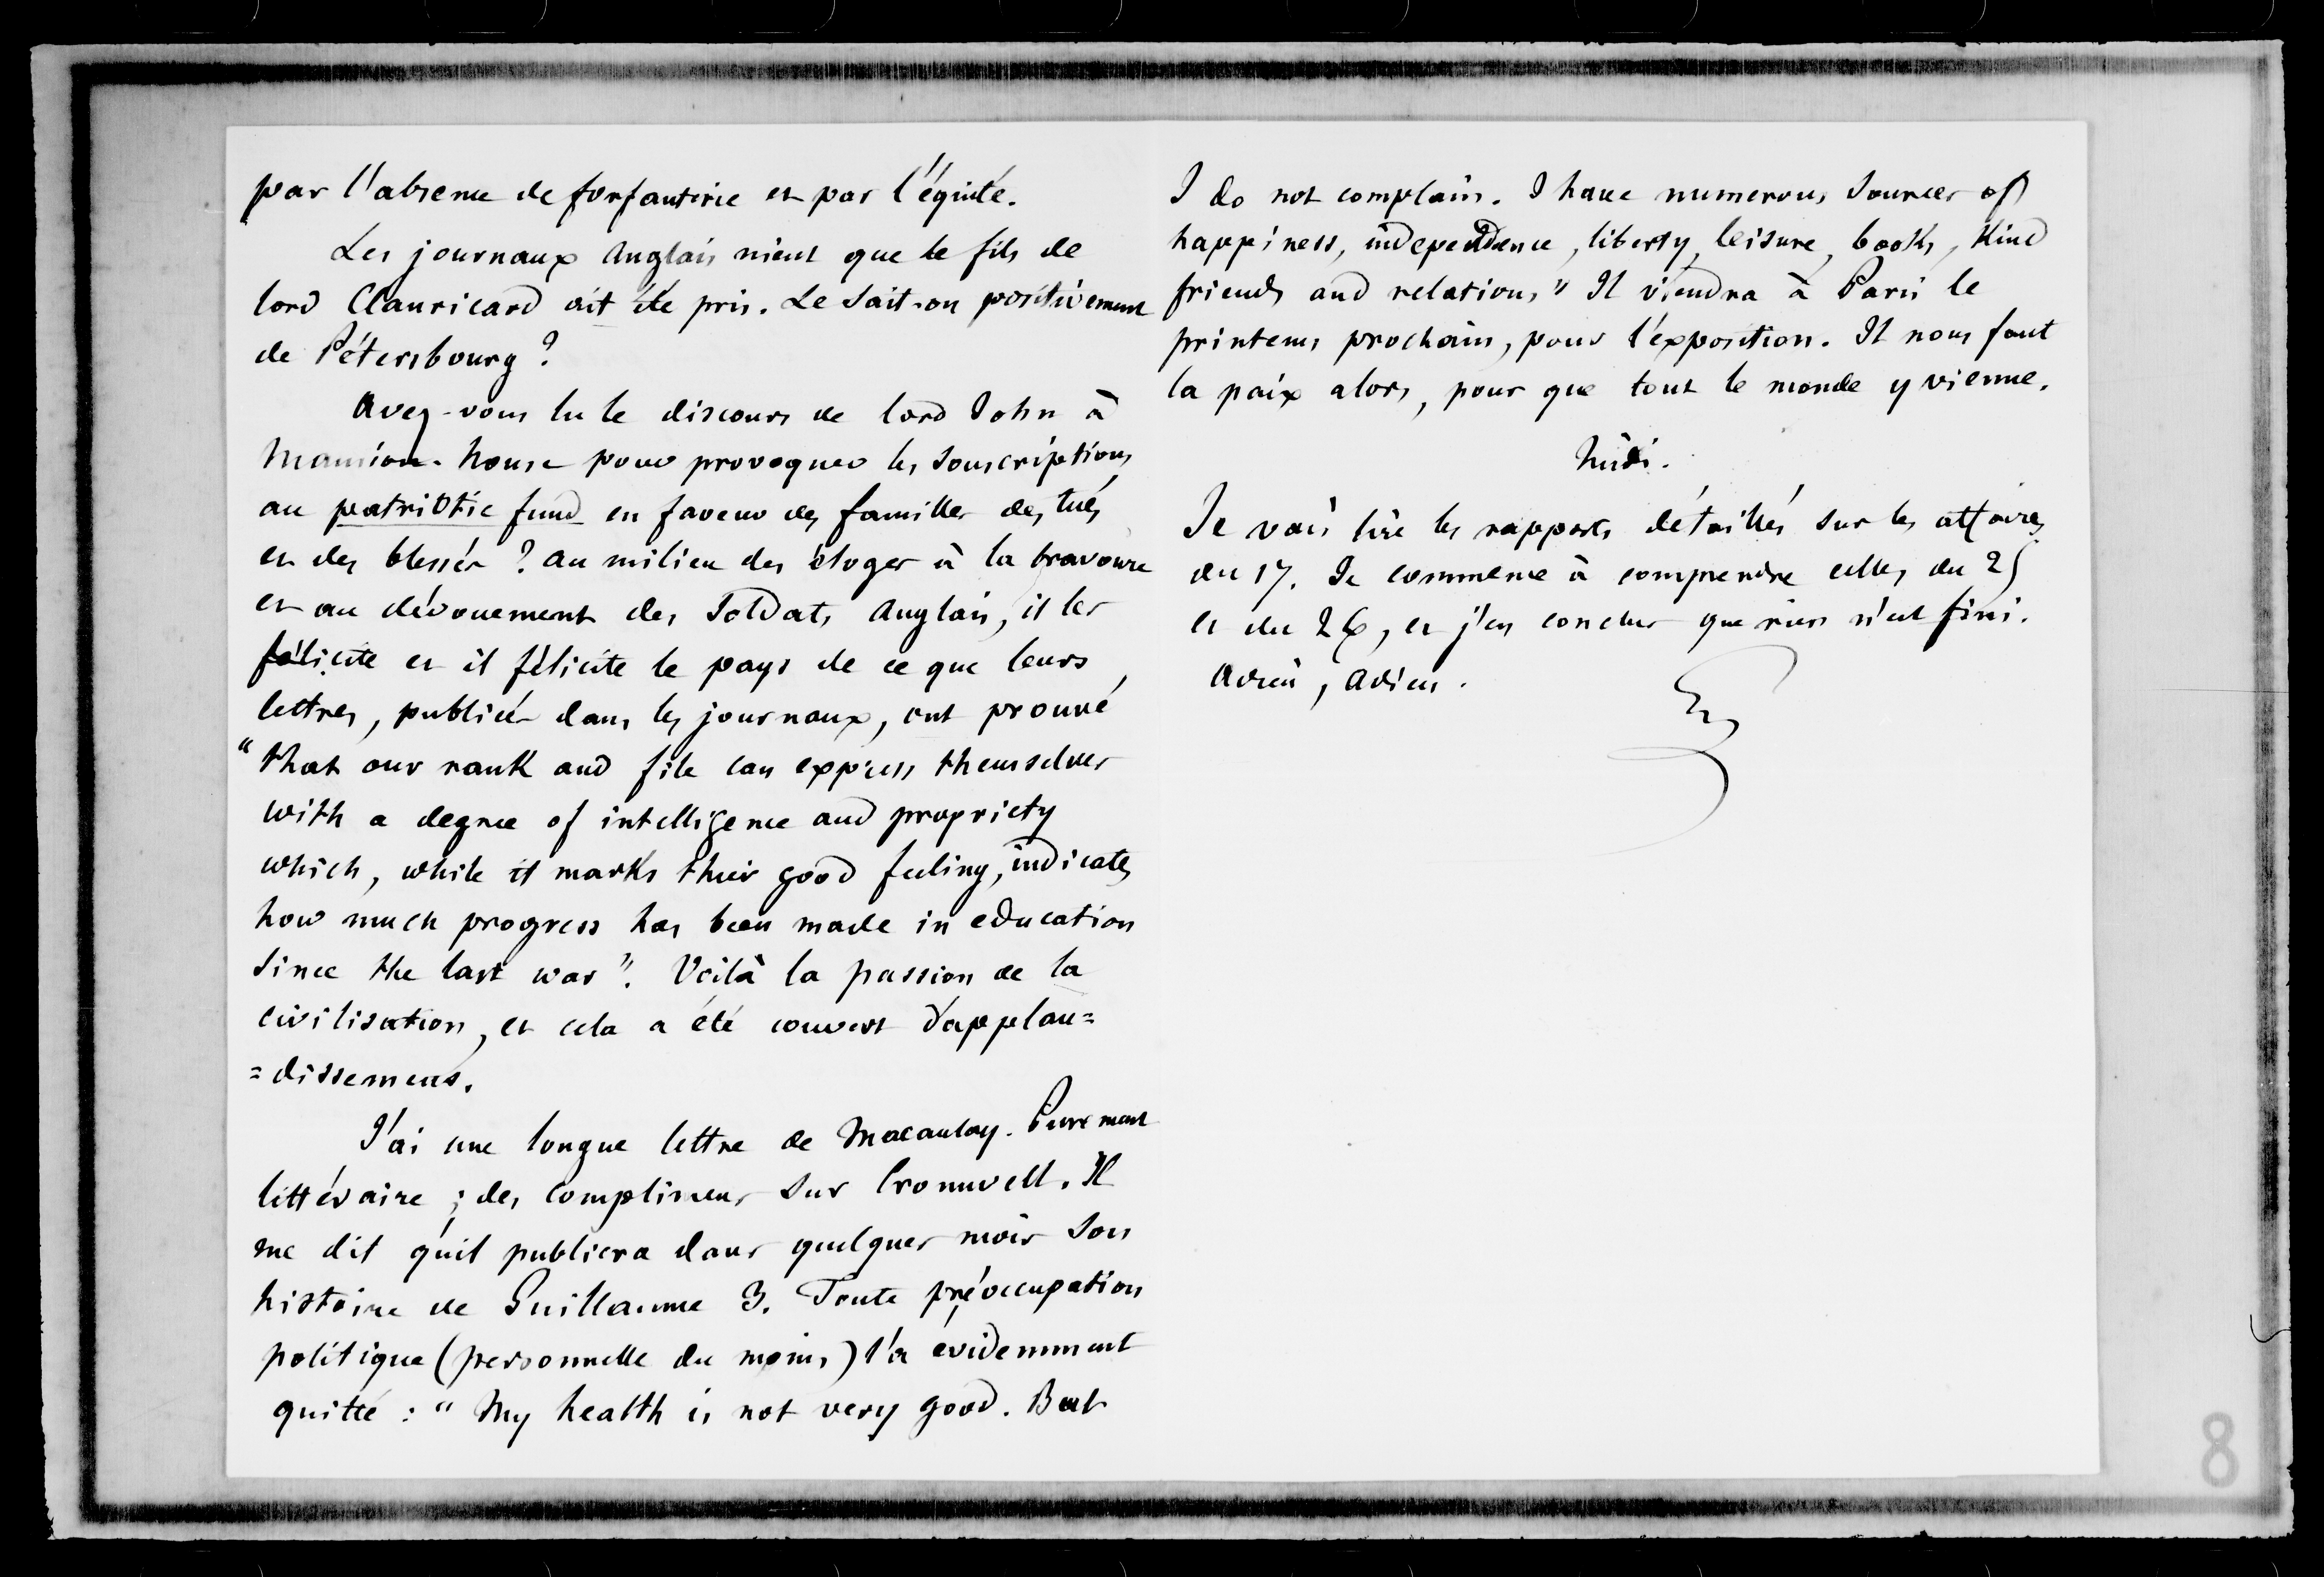 par l'absence de forfanterie et par l'équité.
Les journaux Anglais nient que le fils de
lord Clanricard ait été pris. Le sait-on positivement
de Pétersbourg ?
Avez-vous lu le discours de lord John à
Mansion-house pour provoquer les souscriptions
au patriotic fund en faveur des familles des tués
et des blessés ? Au milieu des éloges à la bravoure
et au dévouement des soldats Anglais, il les
félicite et il félicite le pays de ce que leurs
lettres, publiées dans les journaux, ont prouvé
"that our rank and file can express themselves
with a degree of intelligence and propriety
which, while it marks their good feeling, indicates
how much progress has been made in education
since the last war". Voilà la passion de la
civilisation, et cela a été couvert d'applau=
=dissemens.
J'ai une longue lettre de Macaulay. Purement
littéraire ; des complimens sur Cromwell. Il
me dit qu'il publiera dans quelques mois son
histoire de Guillaume 3. Toute préoccupation
politique (personnelle du moins) l'a évidemment
quitté : "My health is not very good. But
I do not complain. I have numerous sources of
happiness, independence, liberty, leisure, books, kind
friends and relations" Il viendra à Paris le
printems prochain, pour l'exposition. Il nous faut
la paix alors, pour que tout le monde y vienne.
Midi.
Je vais lire les rapports détaillés sur les affaires
du 17. Je commence à comprendre celles du 25
et du 26, et j'en conclus que rien n'est fini.
Adieu, Adieu.
8